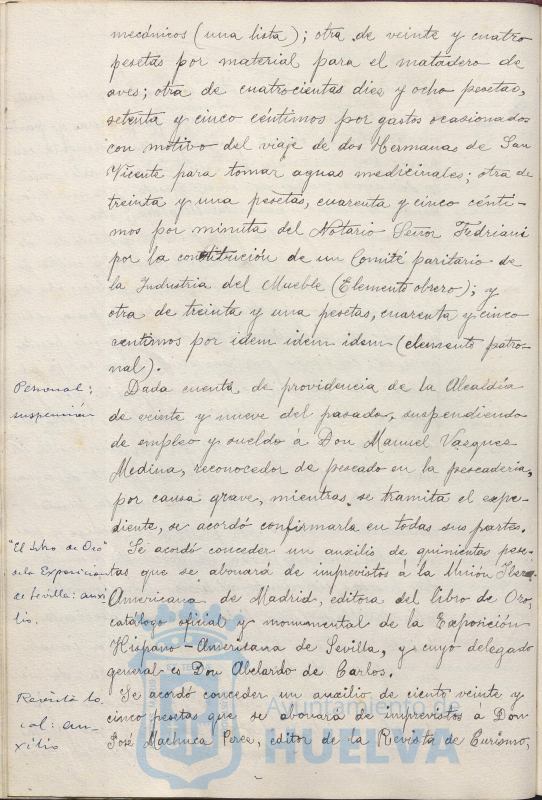 mecánicos (una lista); otra de veinte y cuatro
pesetas por material para el matadero de
aves; otra de cuatrocientas diez y ocho pesetas,
setenta y cinco céntimos por gastos ocasionados
con motivo del viaje de dos Hermanas de San
Vicente para tomar aguas medicinales; otra de
treinta y una pesetas, cuarenta y cinco cénti-
mos por minuta del Notario Señor Fedriani
por la constitución de un Comité paritario de
la Industria del Mueble (Elemento obrero); y
otra de treinta y una pesetas, cuarenta y cinco
centimos por idem idem idem (elemento patro-
nal).
Personal:
suspensión
Dada cuenta de providencia de la Alcaldía
de veinte y nueve del pasado, suspendiendo
de empleo y sueldo á Don Manuel Vasques
Medina, reconocedor de pescado en la pescadería,
por causa grave, mientras se tramita el expe-
diente, se acordó confirmarla en todas sus partes.
"El Libro de Oro"
de la Exposicion
de Sevilla: auxi
lio.
Se acordó conceder un auxilio de quinientas pese-
tas que se abonará de imprevistos á la Unión Ibero
Americana de Madrid, editora del libro de Oro,
catálogo oficial y monumental de la Exposición
Hispano-Americana de Sevilla, y cuyo delegado
general es Don Abelardo de Carlos.
Revista lo
cal: au-
xilio
Se acordó conceder un auxilio de ciento veinte y
cinco pesetas que se abonará de imprevistos á Don
José Machuca Perez, editor de la Revista de Turismo,
Ayuntamiento de
HUELVA